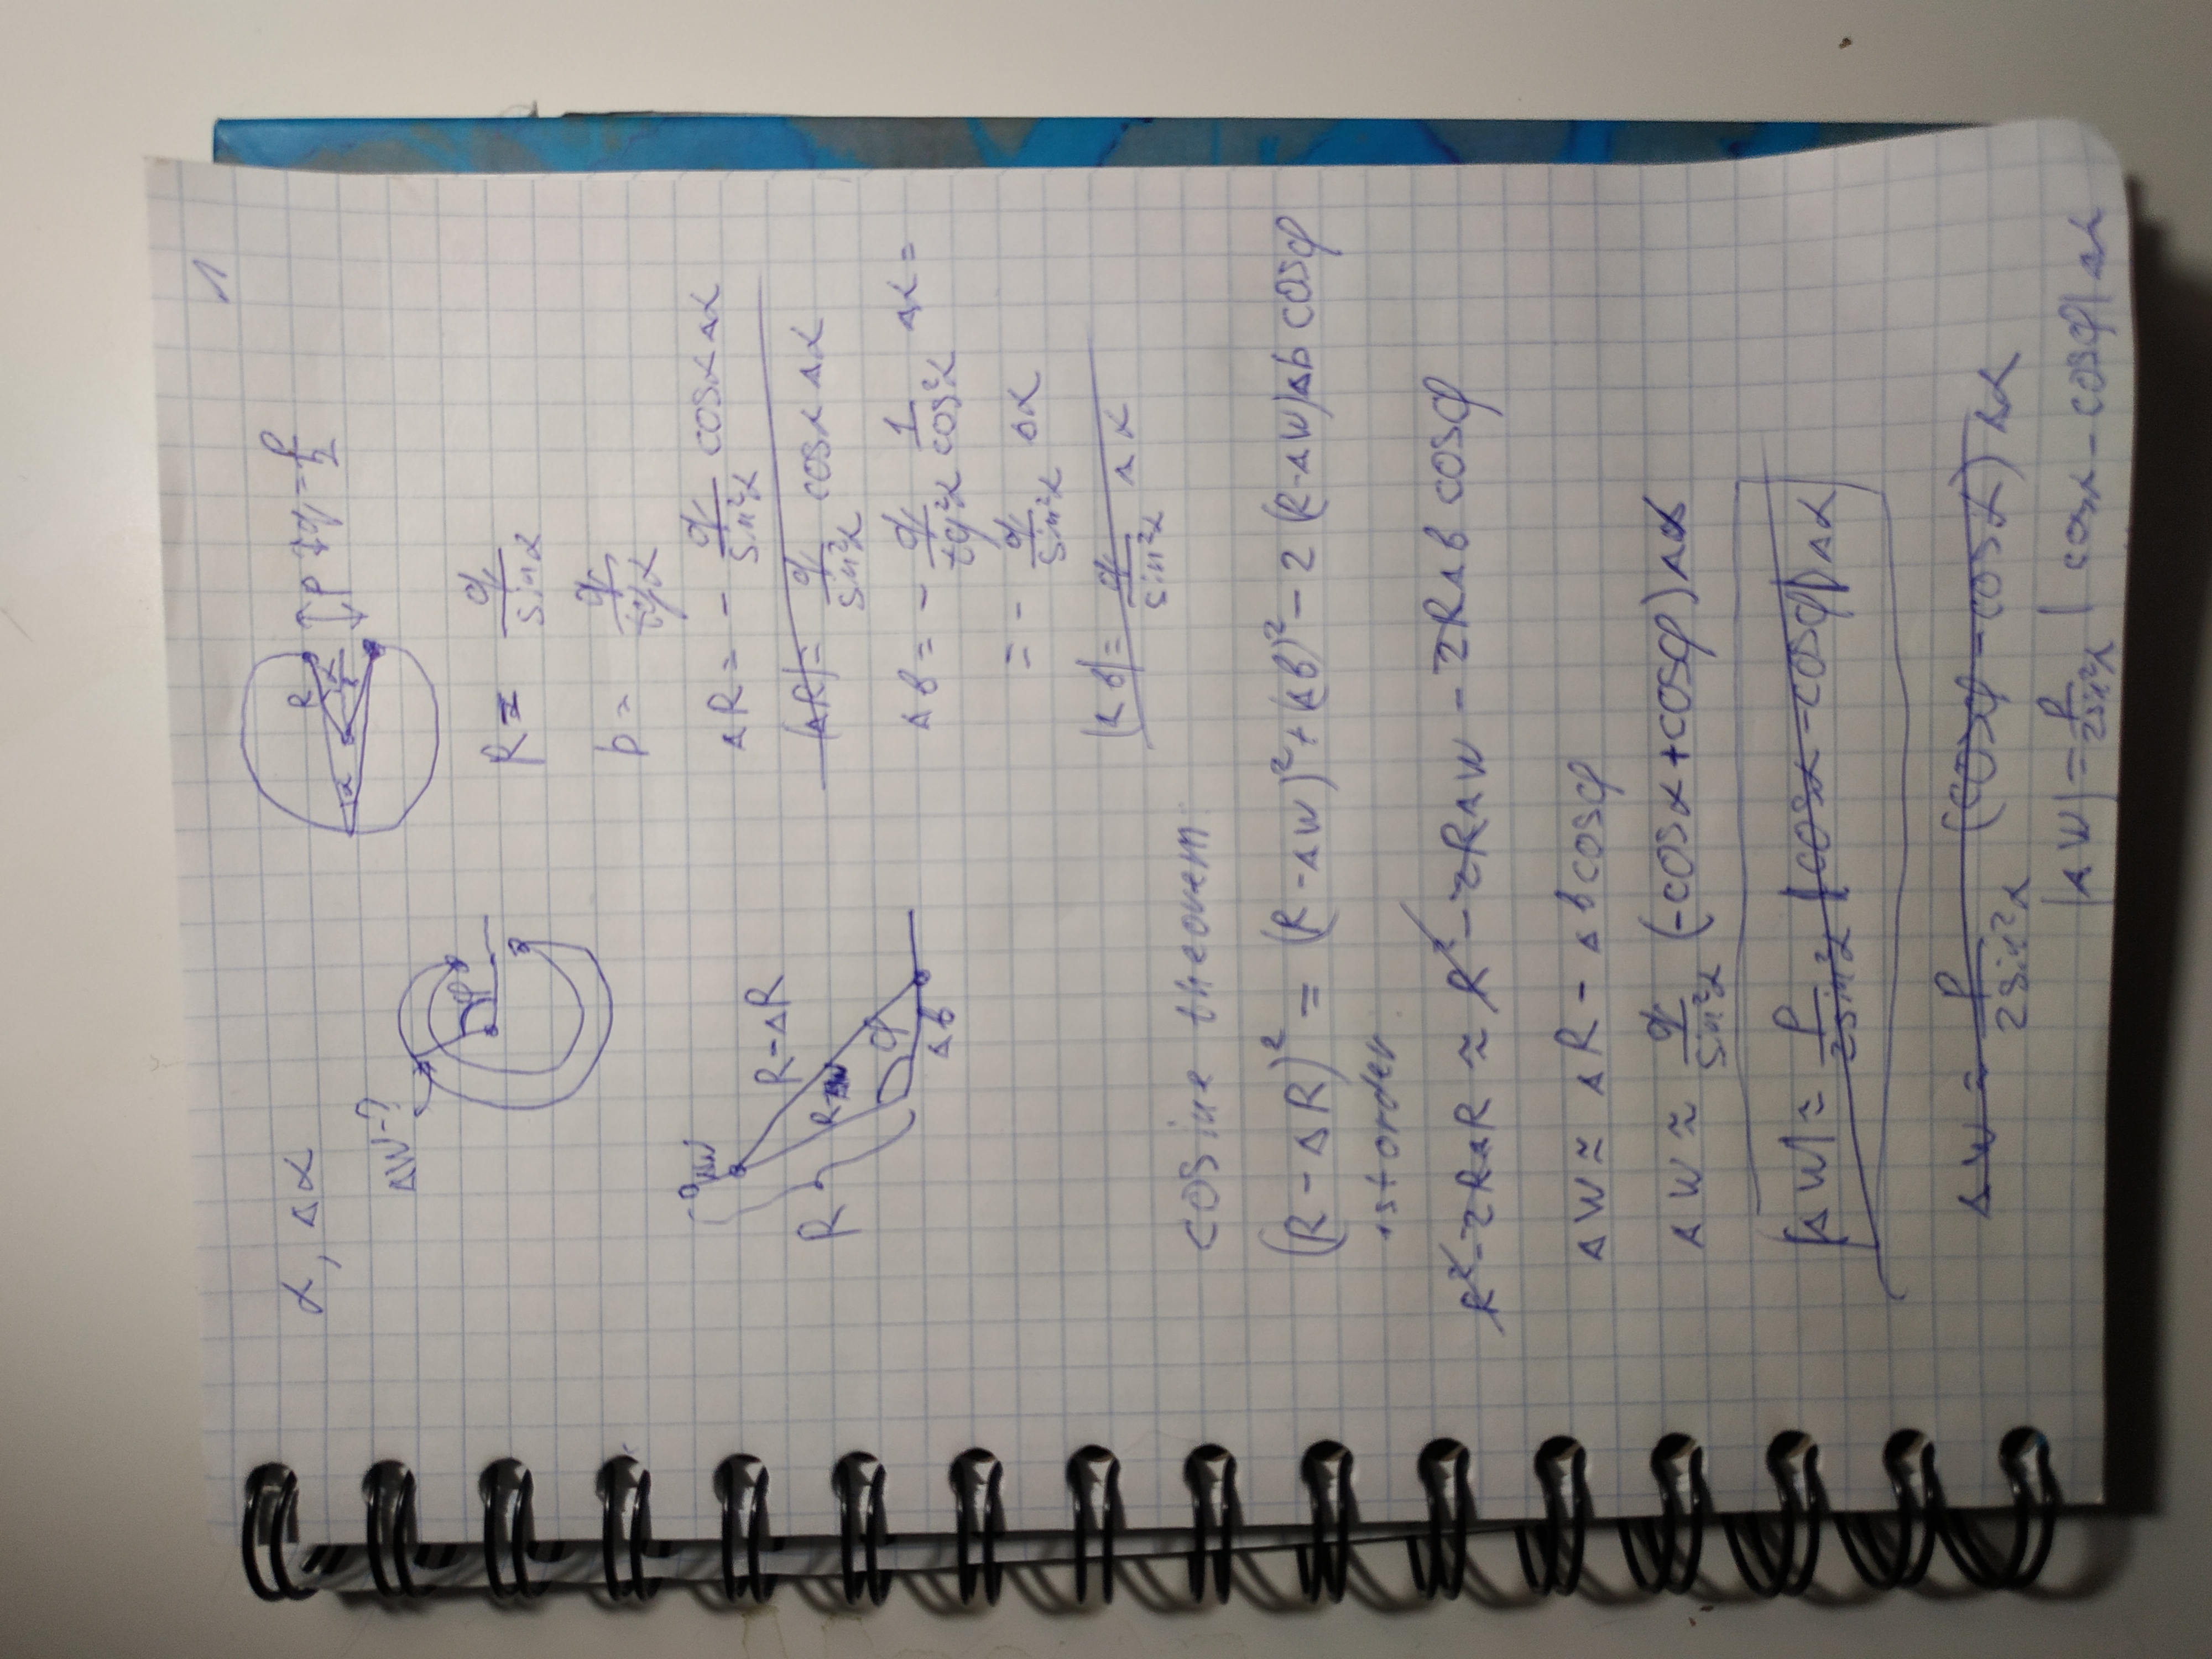 1
α, Δα
ΔW-?
φ
R
α
α
α
p
q = p/2
R = q/sinα
b = q/tgα
ΔR = - q/sin²α cosα Δα
|ΔR| = q/sin²α cosα Δα
Δb = - q/tg²α 1/cos²α Δα =
= - q/sin²α Δα
|Δb| = q/sin²α Δα
ΔW
R-ΔR
R
R-ΔW
φ
Δb
cosine theorem:
(R - ΔR)² = (R - ΔW)² + (Δb)² - 2 (R-ΔW)Δb cosφ
1st order:
R² - 2RΔR ≈ R² - 2RΔW - 2RΔb cosφ
ΔW ≈ ΔR - Δb cosφ
ΔW ≈ q/sin²α (-cosα + cosφ) Δα
|ΔW| ≈ p/2sin²α |cosα - cosφ| Δα
ΔW ≈ p/2sin²α (cosφ - cosα) Δα
|ΔW| = p/2sin²α | cosα - cosφ| Δα